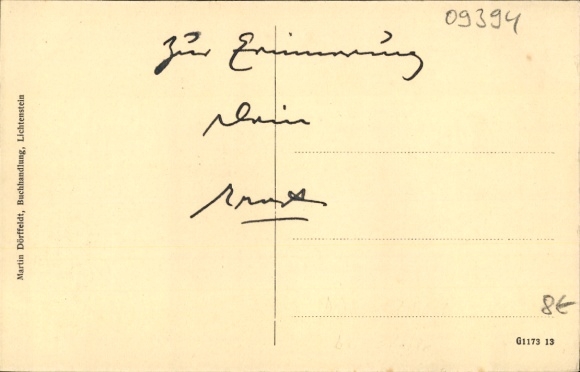 09394
Zur Erinnerung
Dein
Ernst
Martin Dörffeldt, Buchhandlung, Lichtenstein
8€
G1173 13